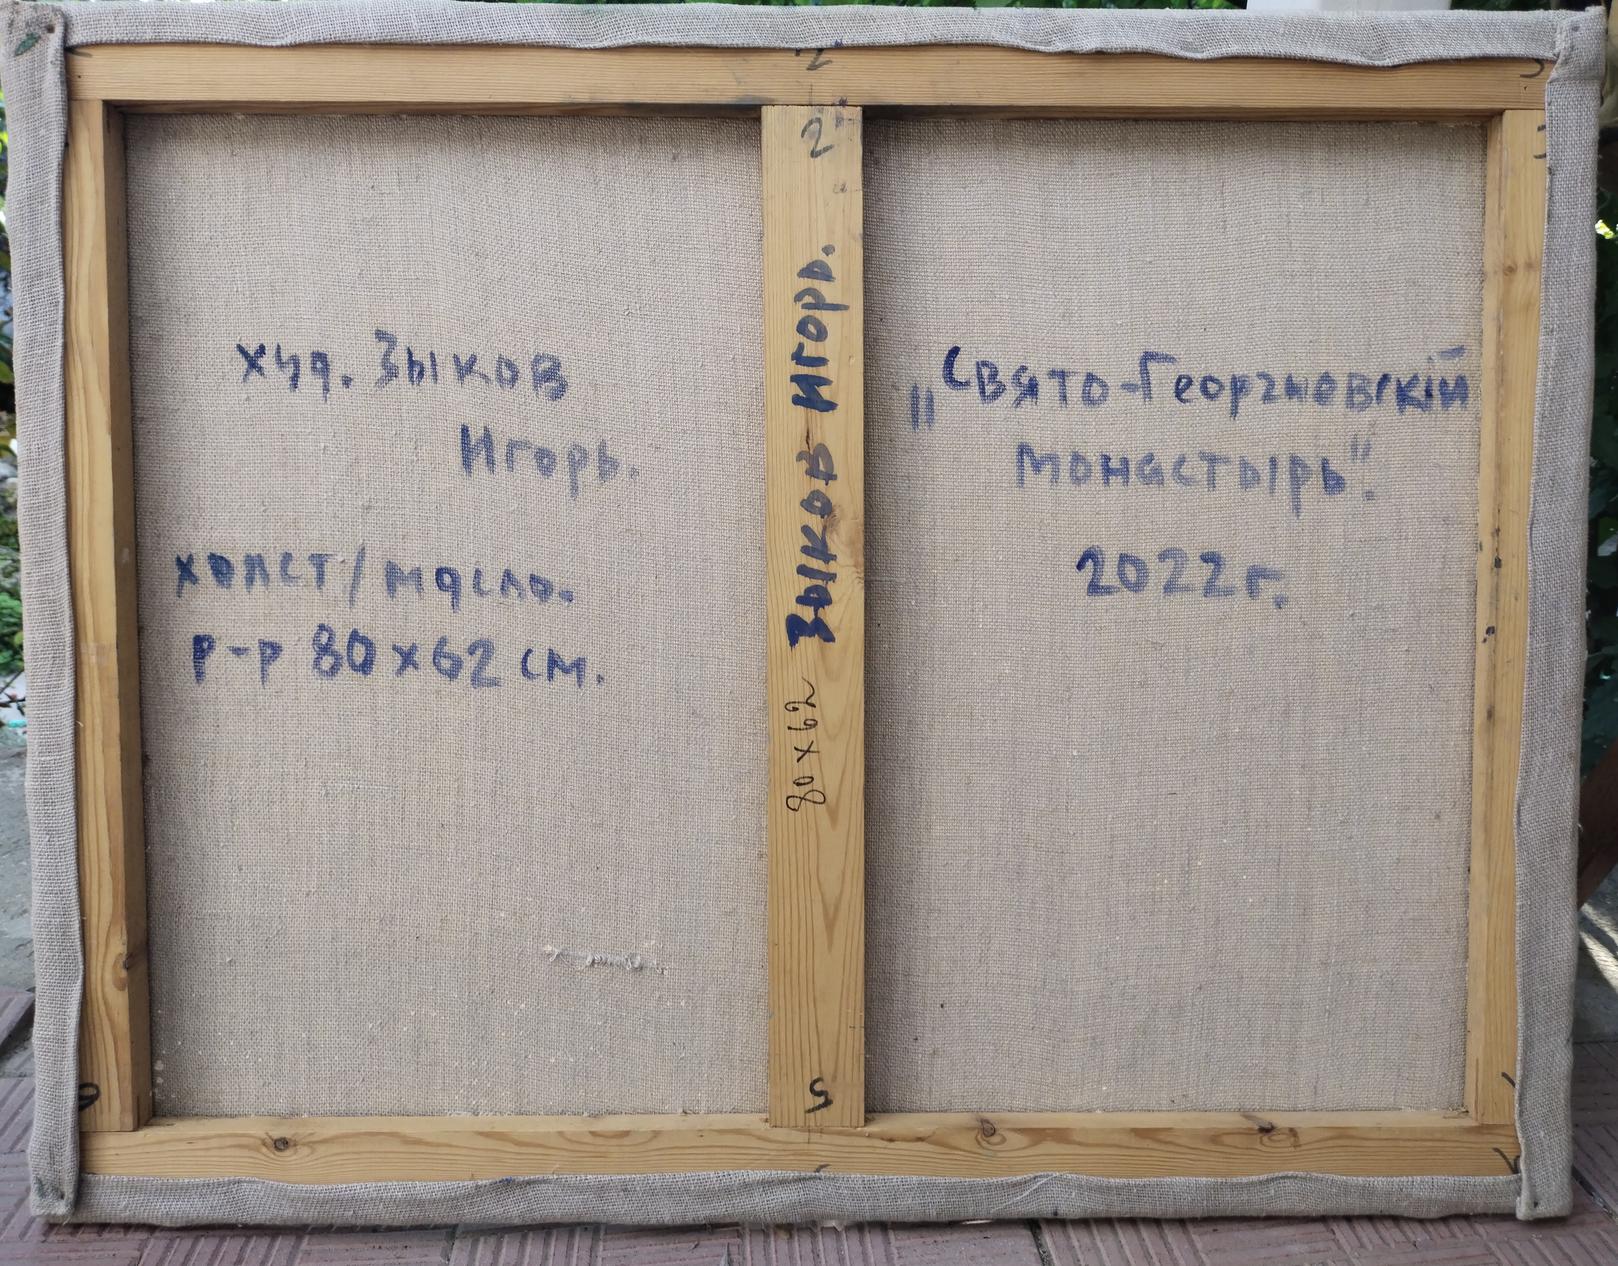 худ. Зыков
Игорь.
холст/масло.
р-р 80х62 см.
2
2
Зыков Игорь.
80х62
5
„Свято-Георгиевскій
монастырь".
2022г.
6